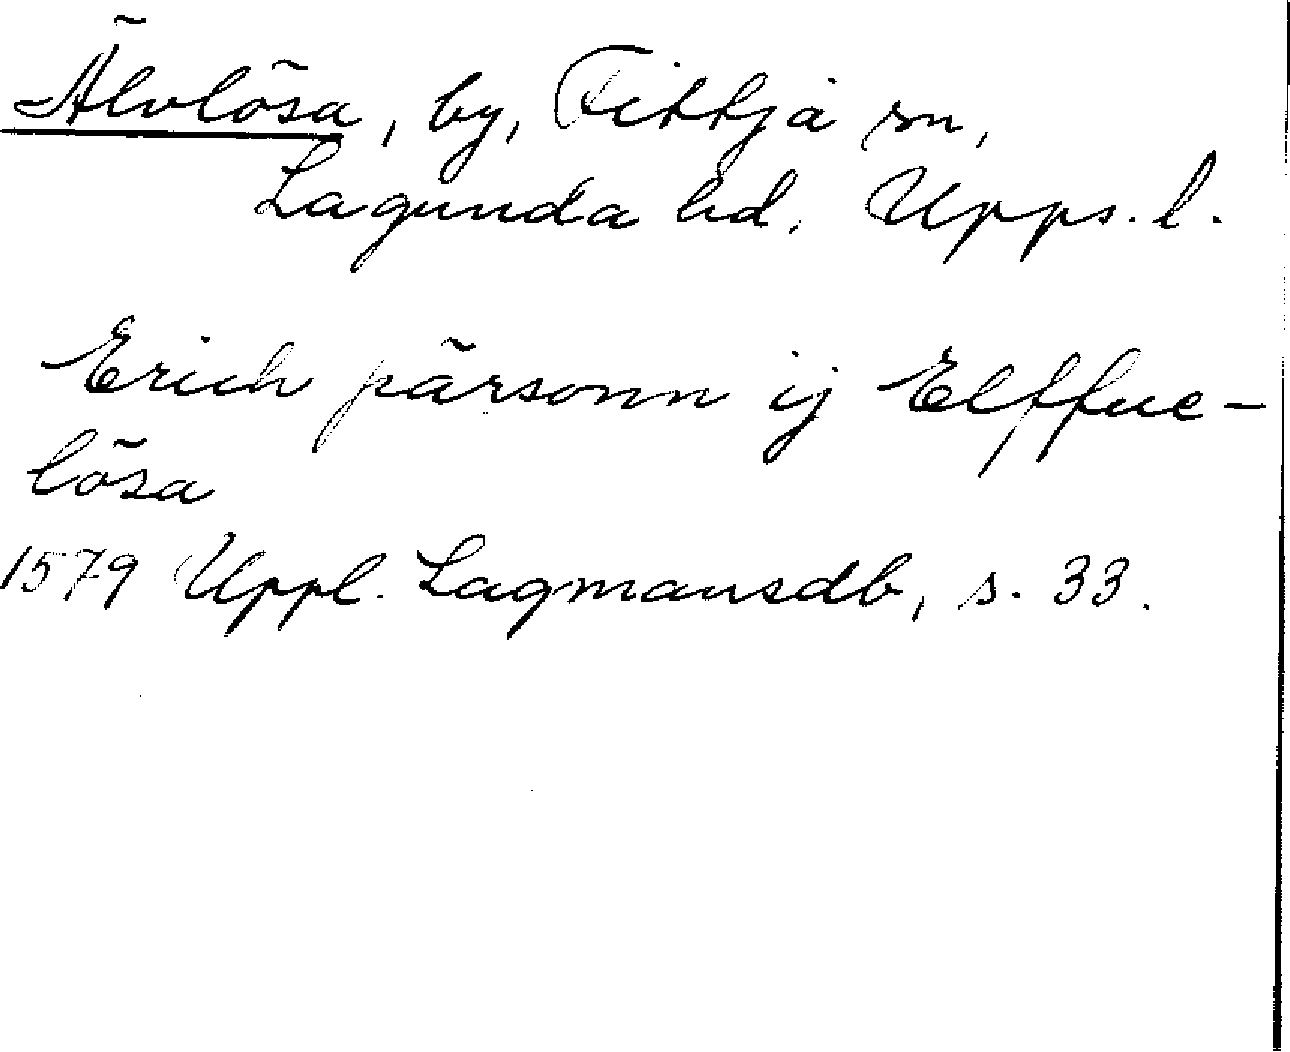 Älvlösa, by, Fittja sn,
Lagunda hd, Upps. l.
Erich pärsonn ij Elffue-
lösa
1579 Uppl. Lagmansdb, s. 33.